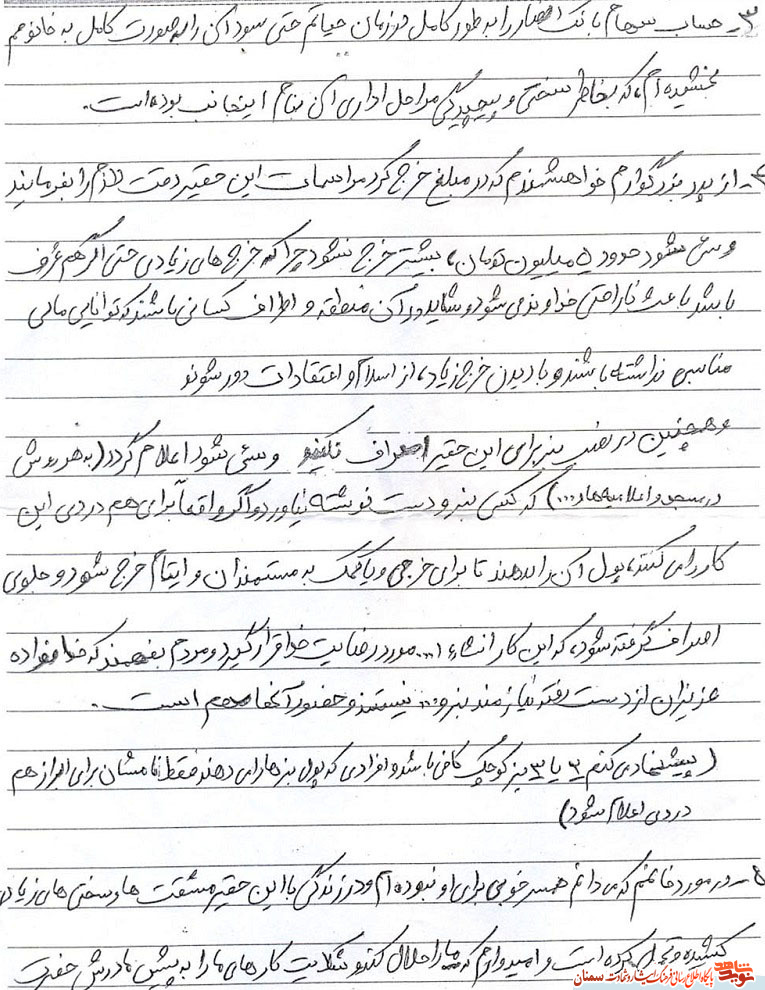 ۳- حساب سهام بانک انصار را به طور کامل در زمان حیاتم حتی سود آن را به صورت کامل به خانومم
بخشیده‌ام، که بخاطر سختی و پیچیدگی مراحل اداری آن بنام اینجانب بوده است.
۴- از پدر بزرگوارم خواهشمندم که در مبلغ خرج کرد مراسمات این حقیر دقت لازم را بفرمایند
و سعی شود حدود ۵ میلیون تومان، بیشتر خرج نشود چرا که خرج های زیادی حتی اگر هم عرف
باشد باعث ناراحتی خداوند می شود و شاید در آن منطقه و اطراف کسانی باشند که توانایی مالی
مناسبی نداشته باشند و با دیدن خرج زیاد، از اسلام و اعتقادات دور شوند
و همچنین در نصب بنر برای این حقیر اصراف نکنید و سعی شود اعلام گردد (به هر روش
در مسجد و اعلامیه ها و ...) که کسی بنر و دست نوشته نیاورد و اگر واقعاً برای هم دردی این
کار را می کنند، پول آن را بدهند تا برای خرجی و یا کمک به مستمندان و ایتام خرج شود و جلوی
اصراف گرفته شود، که این کار انشاءا... مورد رضایت خدا قرار گیرد و مردم بفهمند که خانواده
عزیزان از دست رفته نیازمند بنر و ... نیستند و حضور آنها مهم است.
(پیشنهاد می کنم ۲ یا ۳ بنر کوچک کافی باشد و افرادی که پول بنرها را می دهند فقط نامشان برای ابراز هم
دردی اعلام شود)
۵- در مورد خانمم که می دانم همسر خوبی برای او نبوده ام و در زندگی با این حقیر مشقت ها و سختی های زیادی
کشیده و تحمل کرده است و امیدوارم که ما را حلال کند و شکایت کارهای ما را به پیش مادرش حضرت
نوید شاهد پایگاه اطلاع رسانی فرهنگ ایثار و شهادت سمنان